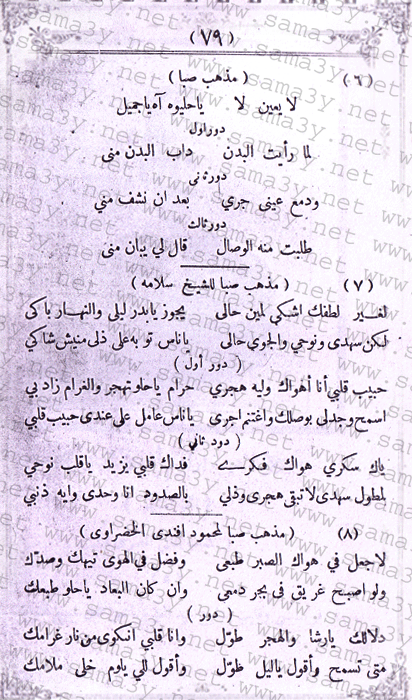 (٧٩)
(٦) (مذهب صبا)
لا يعين لا ياحليوه آه ياجميل
دور اول
لما رأيت البدن داب البدن منى
دور ثانى
ودمع عينى جري بعد ان نشف مني
دور ثالث
طلبت منه الوصال قال لي يبان منى
(٧) (مذهب صبا للشيخ سلامه)
لغير لطفك اشكي لمين حالى يجوز يابدر ليلى والنهار باكى
لكن سهدى ونوحي والجوي حالى ياناس توبه على ذلى منيش شاكي
(دور أول)
حبيب قلبي أنا أهواك وليه هجري حرام ياحلو تهجر والغرام زاد بي
اسمح وجدلى بوصلك واغتنم اجرى ياناس عامل على عندى حبيب قلبي
(دور ثاني)
ياك سكري هواك فكرے فداك قلبي يزيد ياقلب نوحي
لمطول سهدى لا تبقى هجرى وذلي بالصدود انا وحدى وايه ذنبي
(٨) (مذهب صبا لمحمود افندى الخضراوى)
لاجعل في هواك الصبر طبعى وفضل في الهوى تيهك وصدك
ولو اصبح غريق فى بحر دمعى وان كان البعاد ياحلو طبعك
(دور)
دلالك يارشا والهجر طوّل وانا قلبي انكوى من نار غرامك
متى تسمح وأقول ياليل طوّل وأقول للي يلوم خلى ملامك
www.sama3y.net